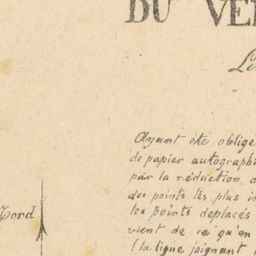 DU VE
Le
Ayant été oblige
de papier autographi
par la réduction d
des points les plus i
les points déplacés
vient de ce qu'on
(la ligne joignant
Nord